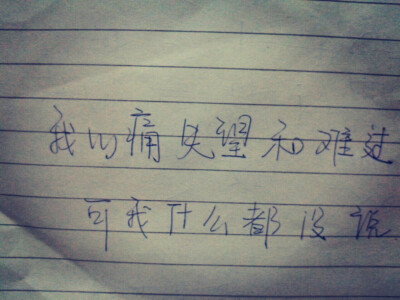 我的痛失望和难过
可我什么都没说